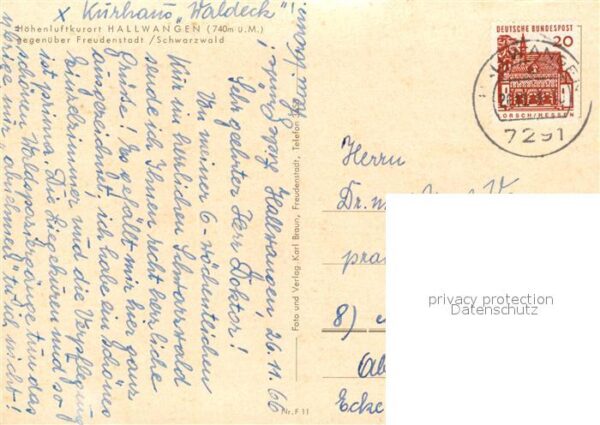 x Kurhaus „Waldeck“!
Höhenluftkurort HALLWANGEN (740m ü.M.)
gegenüber Freudenstadt / Schwarzwald
Hallwangen, 26.11.66
Sehr geehrter Herr Doktor!
Von meiner 6-wöchentlichen
Kur im herrlichen Schwarzwald
sende ich Ihnen recht herzliche
Grüße! Es gefällt mir hier ganz
ausgezeichnet, ich habe ein schönes
Einzelzimmer und die Verpflegung
ist prima. Die Liegekuren und so
schönen Waldspaziergänge tun das
übrige mir, „abnehmen“ tu ich nicht!
Foto und Verlag: Karl Braun, Freudenstadt, Telefon
Nr. F 11
DEUTSCHE BUNDESPOST
20
LORSCH/HESSEN
7291
Herrn
Dr. m
pra
8)
Ecke
privacy protection
Datenschutz